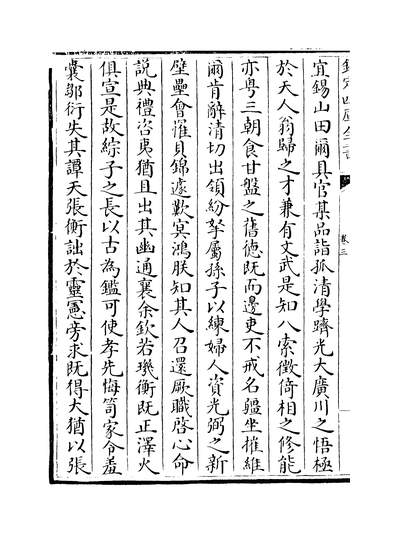 欽定四庫全書
卷三
宜錫山田爾具官某品詣孤清學躋光大廣川之悟極
於天人翁歸之才兼有文武是知八索徵倚相之修能
亦粤三朝食甘盤之舊德既而邊吏不戒名疆坐摧維
爾肯辭清切出領紛拏屬孫子以練婦人資光弼之新
壁壘會罹貝錦遽歎冥鴻朕知其人召還厥職啓心命
説典禮咨夷猶且出其幽通襄余欽若璣衡既正澤火
俱宣是故綜子之長以古為鑑可使孝先悔笥家令羞
囊鄒衍失其譚天張衡詘於靈憲旁求既得大猶以張